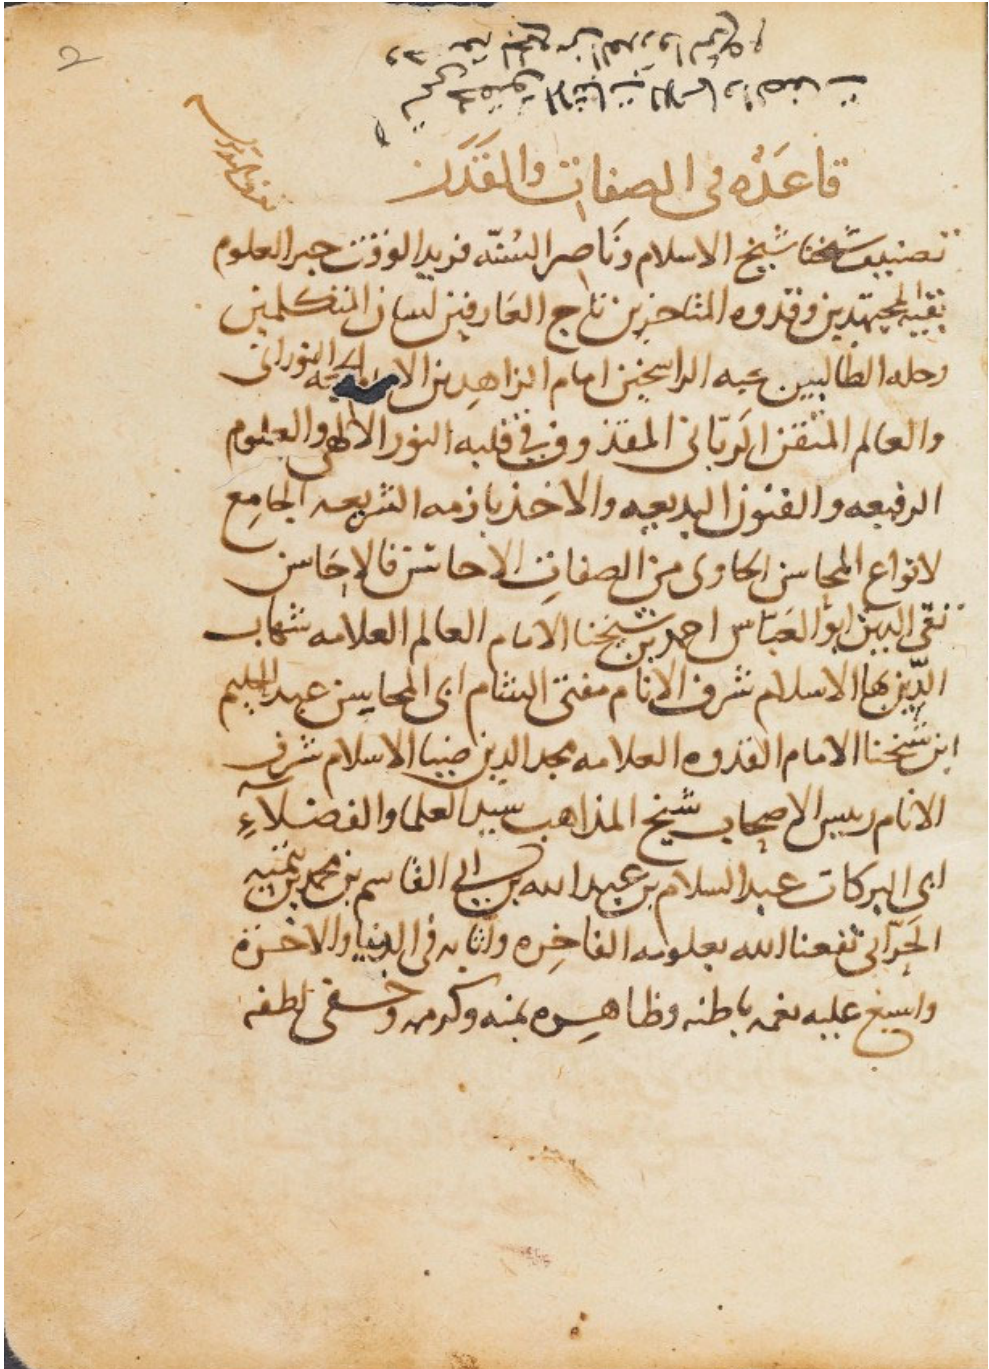 قاعده في الصفات والقدر
تصنيف شيخنا شيخ الاسلام وناصر السنه فريد الوقت حبر العلوم
بقيه المجتهدين وقدوه المتاخرين تاج العارفين لسان المتكلمين
رحله الطالبين الراسخين امام الزاهدين النوراني
والعالم المتقن الرباني المقذوف في قلبه النور الالهي والعلوم
الرفيعه والفنون البديعه والاخذ بازمه الشريعه الجامع
لانواع المحاسن الحاوي من الصفات الاحاسن فالاحاسن
تقي الدين ابو العباس احمد بن شيخنا الامام العالم العلامه شهاب
الدين بها الاسلام شرف الانام مفتى الشام ابي المحاسن عبد الحليم
ابن شيخنا الامام القدوه العلامه مجد الدين ضيا الاسلام شرف
الانام رييس الاصحاب شيخ المذاهب سيد العلما والفضلاء
ابي البركات عبد السلام بن عبد الله بن ابي القاسم بن محمد بن تيميه
الحراني نفعنا الله بعلومه الفاخره واثابه في الدنيا والاخرة
واسبغ عليه نعمه باطنه وظاهره بمنه وكرمه وخفى لطفه